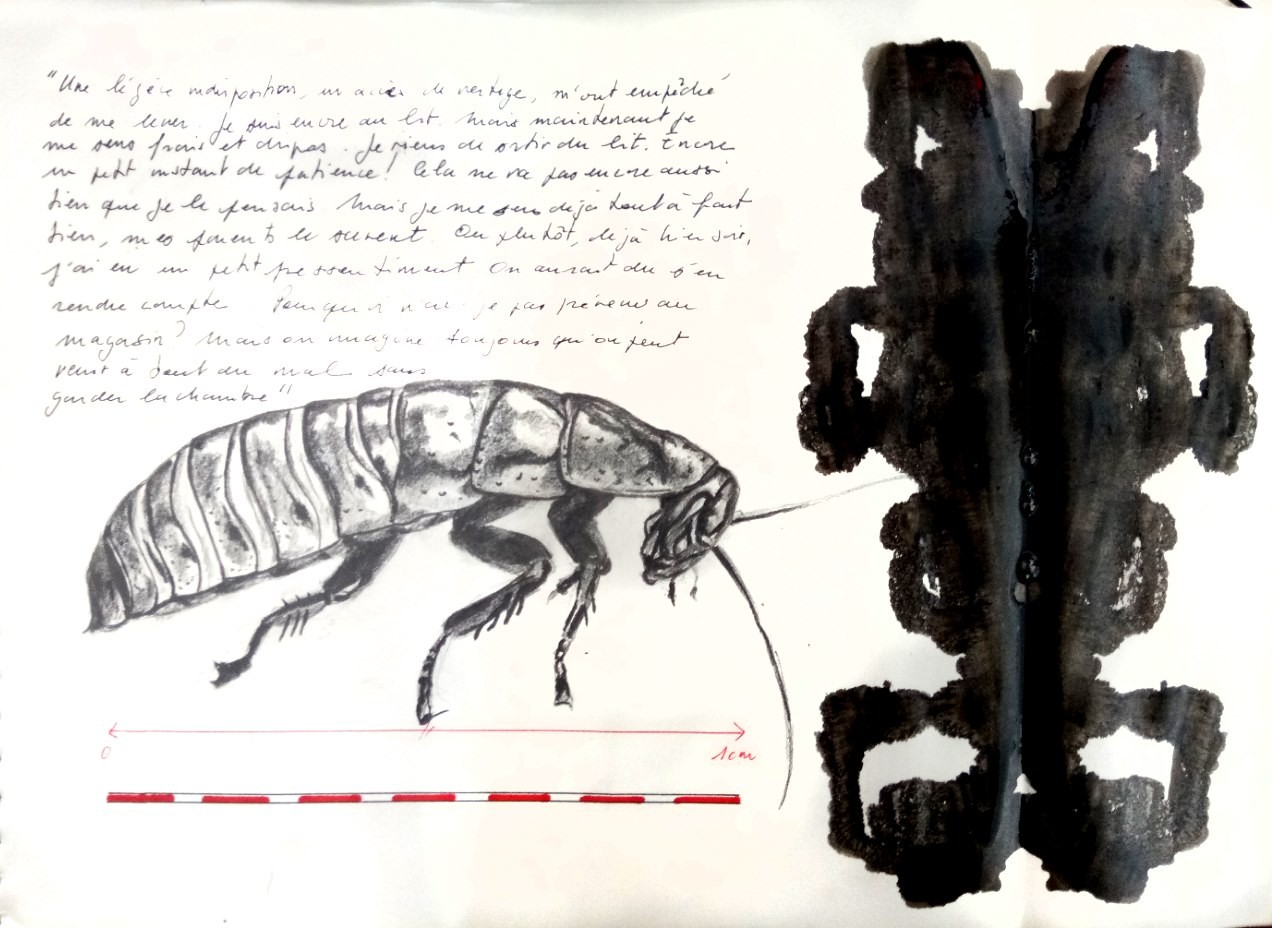 "Une légère indisposition, un accès de vertige, m'ont empêché
de me lever. Je suis encore au lit. Mais maintenant je
me sens frais et dispos. Je viens de sortir du lit. Encore
un petit instant de patience! Cela ne va pas encore aussi
bien que je le pensais. Mais je me sens déjà tout à fait
bien, mes parents le savent. Ou plutôt, déjà hier soir,
j'ai eu un petit pressentiment. On aurait dû s'en
rendre compte. Pourquoi n'ai-je pas prévenu au
magasin? Mais on imagine toujours qu'on peut
venir à bout du mal sans
garder la chambre"
0 1cm